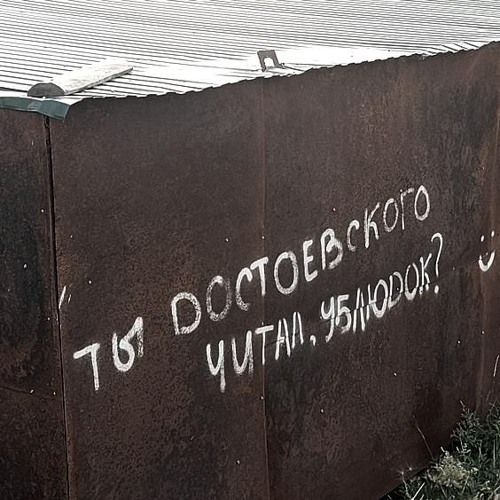 ТЫ DОСТОЕВСКОГО
ЧИТАЛ, УБЛЮДОК?